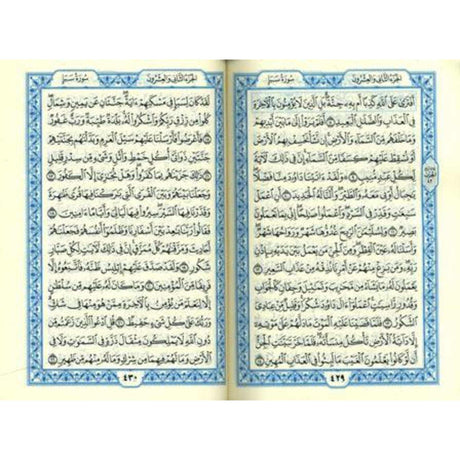 الجزء الثاني والعشرون
سورة سبإ
أَفْتَرَىٰ عَلَى اللَّهِ كَذِبًا أَم بِهِۦ جِنَّةٌۢ بَلِ الَّذِينَ لَا يُؤْمِنُونَ بِالْآخِرَةِ
فِي الْعَذَابِ وَالضَّلَٰلِ الْبَعِيدِ ٨ أَفَلَمْ يَرَوْا إِلَىٰ مَا بَيْنَ أَيْدِيهِمْ
وَمَا خَلْفَهُم مِّنَ السَّمَآءِ وَالْأَرْضِ إِن نَّشَأْ نَخْسِفْ بِهِمُ
الْأَرْضَ أَوْ نُسْقِطْ عَلَيْهِمْ كِسَفًا مِّنَ السَّمَآءِ إِنَّ فِي ذَٰلِكَ لَآيَةً
لِّكُلِّ عَبْدٍ مُّنِيبٍ ٩ وَلَقَدْ آتَيْنَا دَاوُۥدَ مِنَّا فَضْلًا
يَٰجِبَالُ أَوِّبِي مَعَهُۥ وَالطَّيْرَ وَأَلَنَّا لَهُ الْحَدِيدَ ١٠ أَنِ اعْمَلْ
سَٰبِغَٰتٍ وَقَدِّرْ فِي السَّرْدِ وَاعْمَلُوا صَٰلِحًا إِنِّي بِمَا تَعْمَلُونَ
بَصِيرٌ ١١ وَلِسُلَيْمَٰنَ الرِّيحَ غُدُوُّهَا شَهْرٌ وَرَوَاحُهَا شَهْرٌ
وَأَسَلْنَا لَهُۥ عَيْنَ الْقِطْرِ وَمِنَ الْجِنِّ مَن يَعْمَلُ بَيْنَ يَدَيْهِ بِإِذْنِ
رَبِّهِۦ وَمَن يَزِغْ مِنْهُمْ عَنْ أَمْرِنَا نُذِقْهُ مِنْ عَذَابِ السَّعِيرِ ١٢
يَعْمَلُونَ لَهُۥ مَا يَشَآءُ مِن مَّحَٰرِيبَ وَتَمَٰثِيلَ وَجِفَانٍ كَالْجَوَابِ
وَقُدُورٍ رَّاسِيَٰتٍ اعْمَلُوا آلَ دَاوُۥدَ شُكْرًا وَقَلِيلٌ مِّنْ عِبَادِيَ
الشَّكُورُ ١٣ فَلَمَّا قَضَيْنَا عَلَيْهِ الْمَوْتَ مَا دَلَّهُمْ عَلَىٰ مَوْتِهِۦٓ إِلَّا
دَآبَّةُ الْأَرْضِ تَأْكُلُ مِنسَأَتَهُۥ فَلَمَّا خَرَّ تَبَيَّنَتِ الْجِنُّ
أَن لَّوْ كَانُوا يَعْلَمُونَ الْغَيْبَ مَا لَبِثُوا فِي الْعَذَابِ الْمُهِينِ ١٤
٤٢٩
الجزء الثاني والعشرون
سورة سبإ
لَقَدْ كَانَ لِسَبَإٍ فِي مَسْكَنِهِمْ آيَةٌ جَنَّتَانِ عَن يَمِينٍ وَشِمَالٍ
كُلُوا مِن رِّزْقِ رَبِّكُمْ وَاشْكُرُوا لَهُۥ بَلْدَةٌ طَيِّبَةٌ وَرَبٌّ غَفُورٌ
١٥ فَأَعْرَضُوا فَأَرْسَلْنَا عَلَيْهِمْ سَيْلَ الْعَرِمِ وَبَدَّلْنَٰهُم بِجَنَّتَيْهِمْ
جَنَّتَيْنِ ذَوَاتَيْ أُكُلٍ خَمْطٍ وَأَثْلٍ وَشَيْءٍ مِّن سِدْرٍ قَلِيلٍ
١٦ ذَٰلِكَ جَزَيْنَٰهُم بِمَا كَفَرُوا وَهَلْ نُجَٰزِي إِلَّا الْكَفُورَ ١٧
وَجَعَلْنَا بَيْنَهُمْ وَبَيْنَ الْقُرَى الَّتِي بَٰرَكْنَا فِيهَا قُرًى ظَٰهِرَةً
وَقَدَّرْنَا فِيهَا السَّيْرَ سِيرُوا فِيهَا لَيَالِيَ وَأَيَّامًا آمِنِينَ ١٨
فَقَالُوا رَبَّنَا بَٰعِدْ بَيْنَ أَسْفَارِنَا وَظَلَمُوا أَنفُسَهُمْ فَجَعَلْنَٰهُمْ
أَحَادِيثَ وَمَزَّقْنَٰهُمْ كُلَّ مُمَزَّقٍ إِنَّ فِي ذَٰلِكَ لَآيَٰتٍ لِّكُلِّ صَبَّارٍ
شَكُورٍ ١٩ وَلَقَدْ صَدَّقَ عَلَيْهِمْ إِبْلِيسُ ظَنَّهُۥ فَاتَّبَعُوهُ إِلَّا
فَرِيقًا مِّنَ الْمُؤْمِنِينَ ٢٠ وَمَا كَانَ لَهُۥ عَلَيْهِم مِّن سُلْطَٰنٍ
إِلَّا لِنَعْلَمَ مَن يُؤْمِنُ بِالْآخِرَةِ مِمَّنْ هُوَ مِنْهَا فِي شَكٍّ
وَرَبُّكَ عَلَىٰ كُلِّ شَيْءٍ حَفِيظٌ ٢١ قُلِ ادْعُوا الَّذِينَ زَعَمْتُم مِّن
دُونِ اللَّهِ لَا يَمْلِكُونَ مِثْقَالَ ذَرَّةٍ فِي السَّمَٰوَٰتِ وَلَا فِي
الْأَرْضِ وَمَا لَهُمْ فِيهِمَا مِن شِرْكٍ وَمَا لَهُۥ مِنْهُم مِّن ظَهِيرٍ ٢٢
٤٣٠